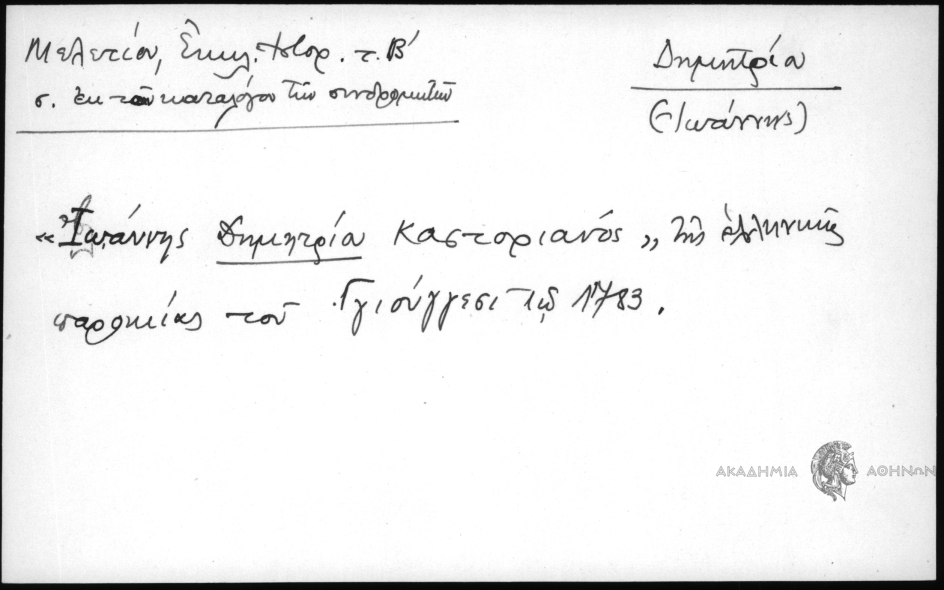 Μελετίου, Ἐκκλ. Ἱστορ. τ. Β΄
σ. ἐκ τοῦ καταλόγου τῶν συνδρομητῶν
Δημητρία
(Ἰωάννης)
«Ἰωάννης Δημητρία Καστοριανός» τῆς ἑλληνικῆς
παροικίας τοῦ Γγιούγγεσι τῷ 1783.
ΑΚΑΔΗΜΙΑ ΑΘΗΝΩΝ